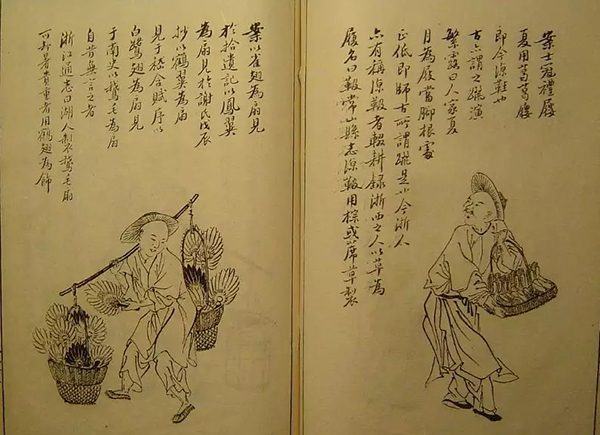 案士冠禮屨
夏用葛葛屨
即今涼鞋也
古亦謂之蹝演
繁露曰人家夏
月為屐當脚根處
正低即師古所謂蹝是也今浙人
亦有稱涼靸者輟耕錄浙西之人以草為
屨名曰靸常山縣志涼靸用棕或蓆草製
案以雀翅為扇見
於拾遺記以鳳翼
為扇見於謝氏戊辰
抄以鶴翼為扇
見于嵇含賦序以
白鷺翅為扇見
于南史以鵞毛為扇
自昔無言之者
浙江通志曰湖人製鵞毛扇
可暑貴重者用鶴翅為飾